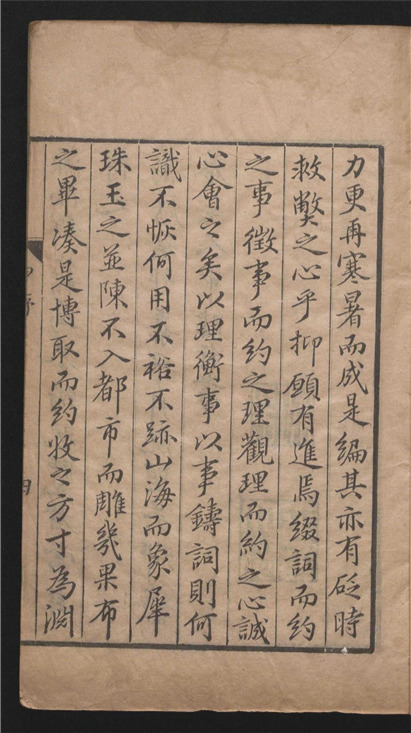 力更再寒暑而成是編其亦有砭時
救獘之心乎抑願有進焉綴詞而約
之事徵事而約之理觀理而約之心誠
心會之矣以理衡事以事鑄詞則何
識不恢何用不裕不跡山海而象犀
珠玉之並陳不入都市而雕幾果布
之畢凑是博取而約收之方寸為淵
序
四